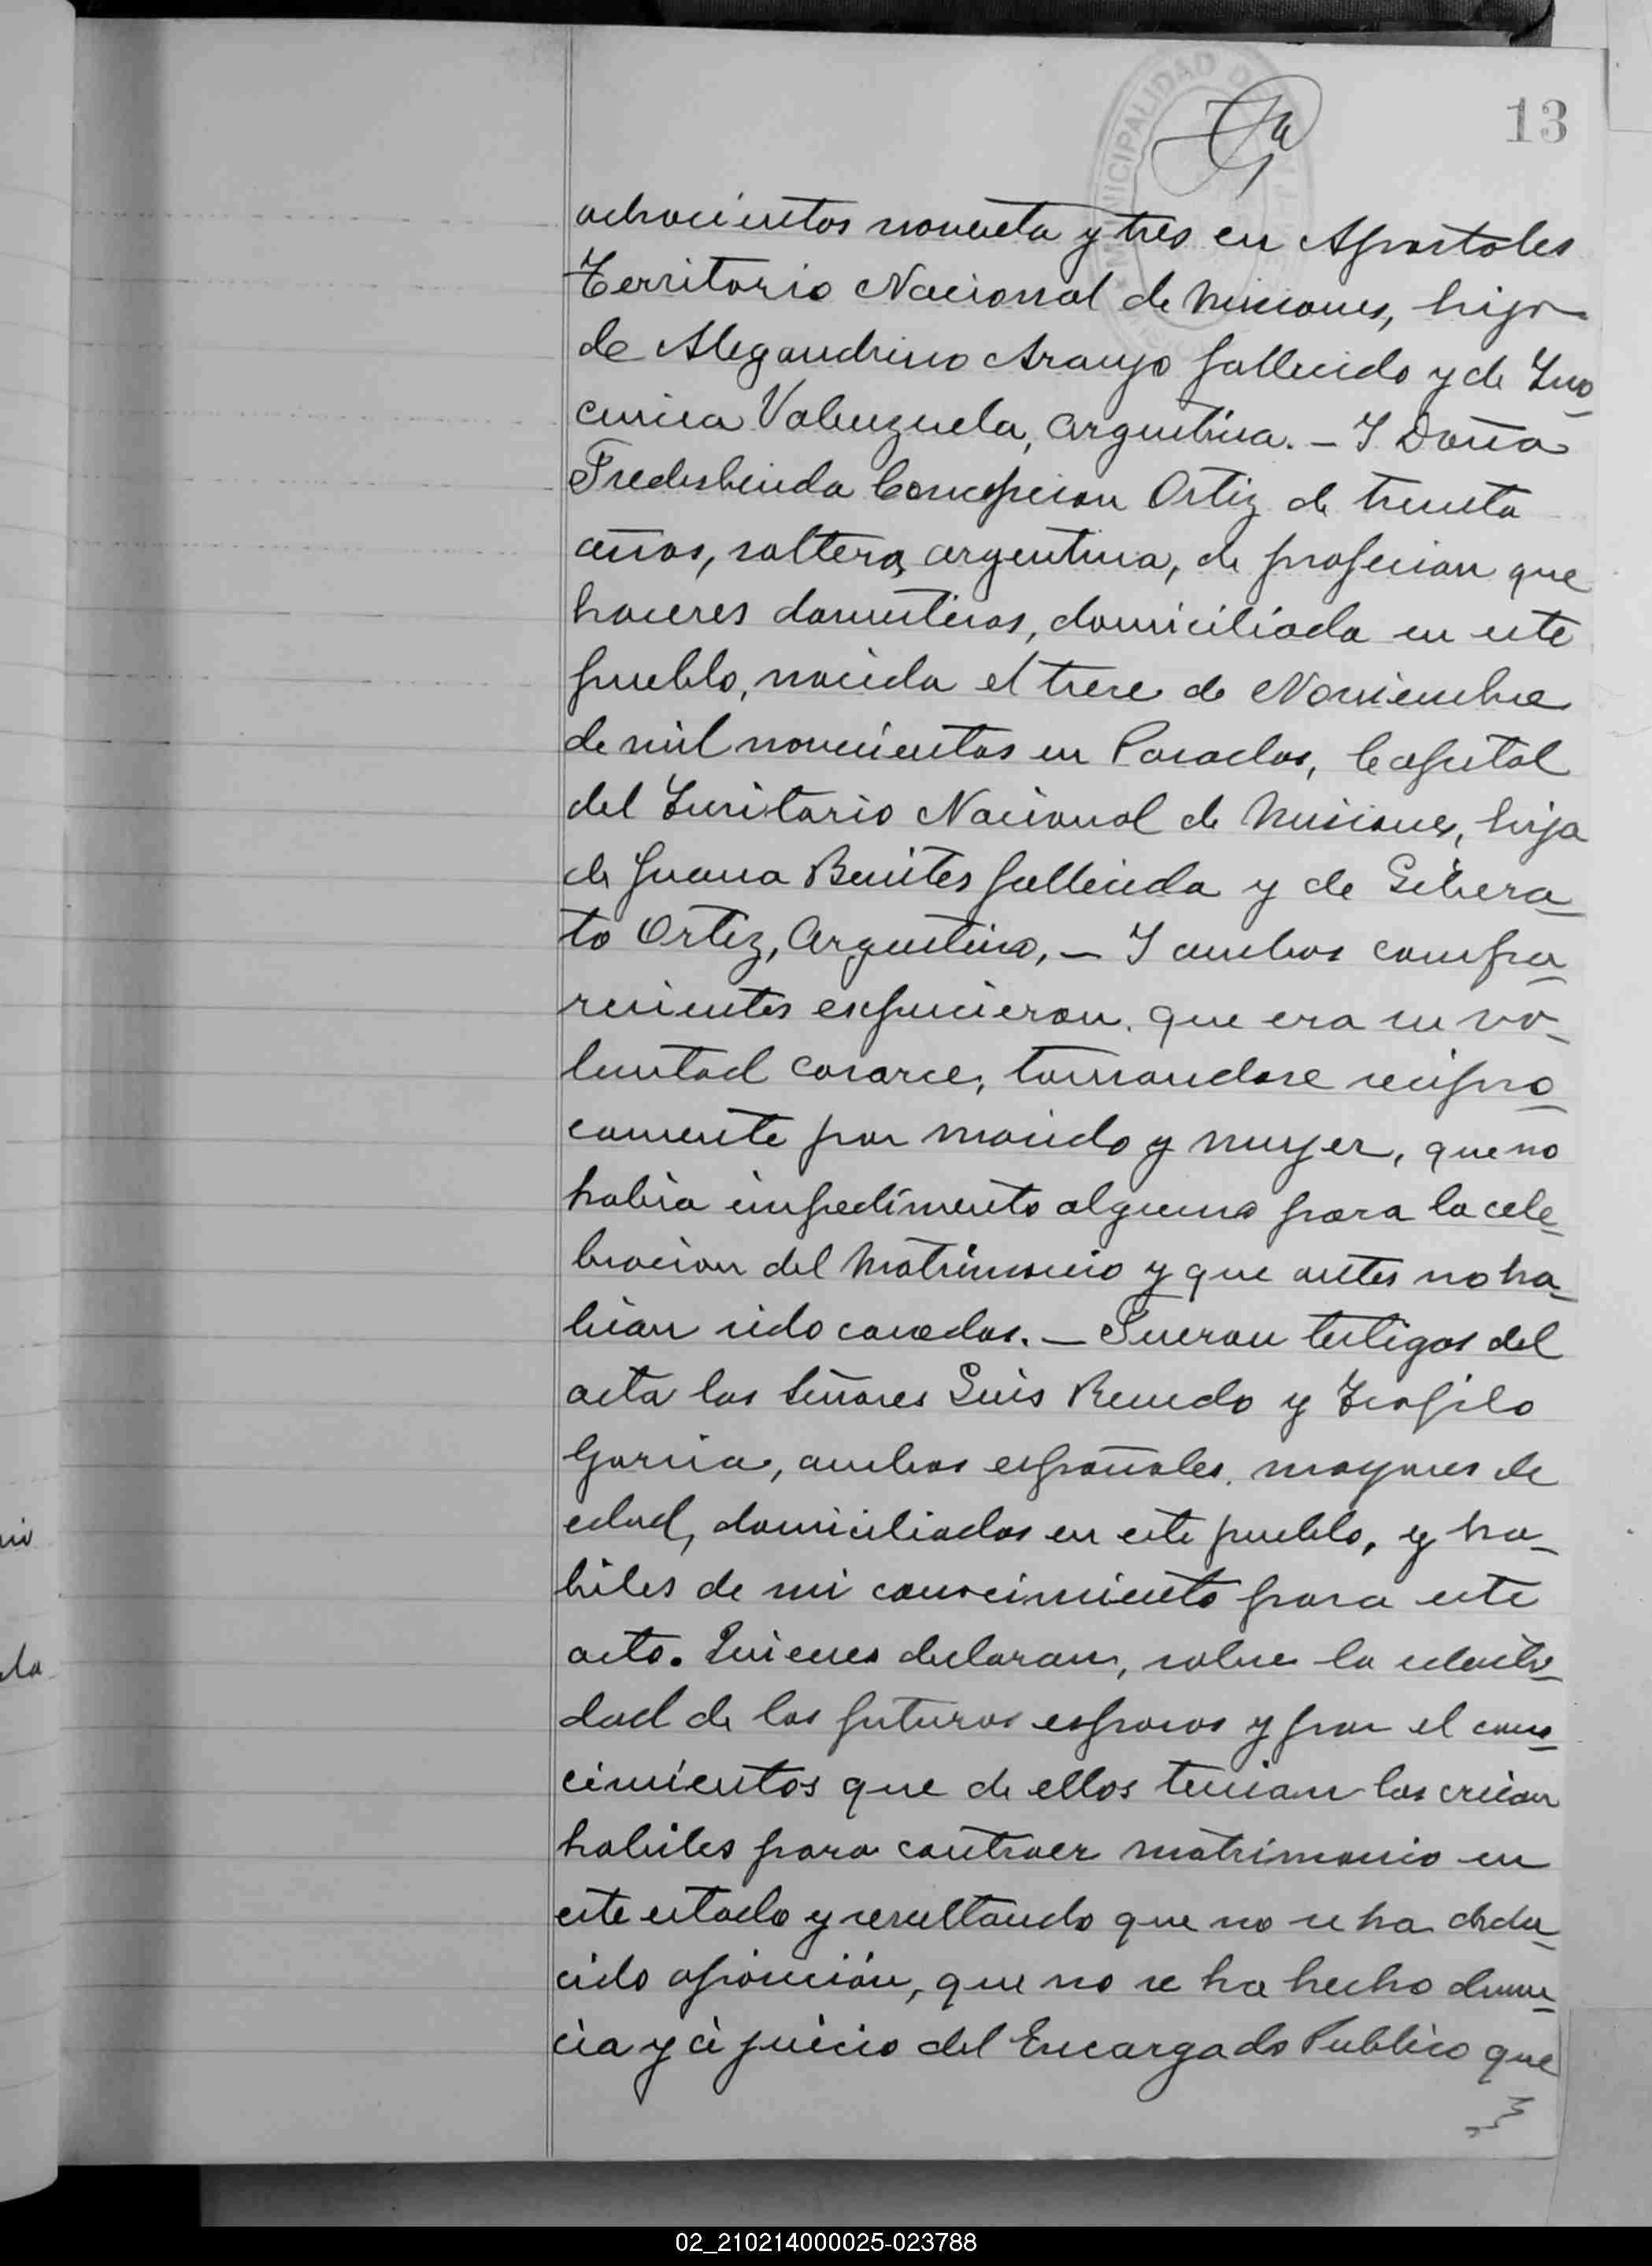 13
MUNICIPALIDAD D
ochocientos noventa y tres en Apostoles
Territorio Nacional de Misiones, hijo
de Alegandrino Araujo fallecido y de Ino-
cencia Valenzuela, argentina. - Y Doña
Fredesbinda Concepcion Ortiz de treinta
años, soltera, argentina, de profesion que
haceres domesticos, domiciliada en este
pueblo, nacida el trece de Noviembre
de mil novecientos en Posadas, Capital
del Territorio Nacional de Misiones, hija
de Juana Benites fallecida y de Libera-
to Ortiz, Argentino, - Y ambos compa-
recientes expucieron que era su vo-
luntad casarce, tomandose recipro-
camente por marido y mujer, que no
habia impedimento alguno para la cele-
bracion del Matrimonio y que antes no ha-
bian sido casados. - Fueron testigos del
acta los Señores Luis Renedo y Teofilo
Garcia, ambos españoles, mayores de
edad, domiciliados en este pueblo, y ha-
biles de mi conocimiento para este
acto. Quienes declaran, sobre la identi-
dad de los futuros esposos y por el cono-
cimientos que de ellos tenian los creian
habiles para contraer matrimonio en
este estado y resultando que no se ha dedu-
cido oposición, que no se ha hecho denun-
cia y á juicio del Encargado Publico que
02_210214000025-023788